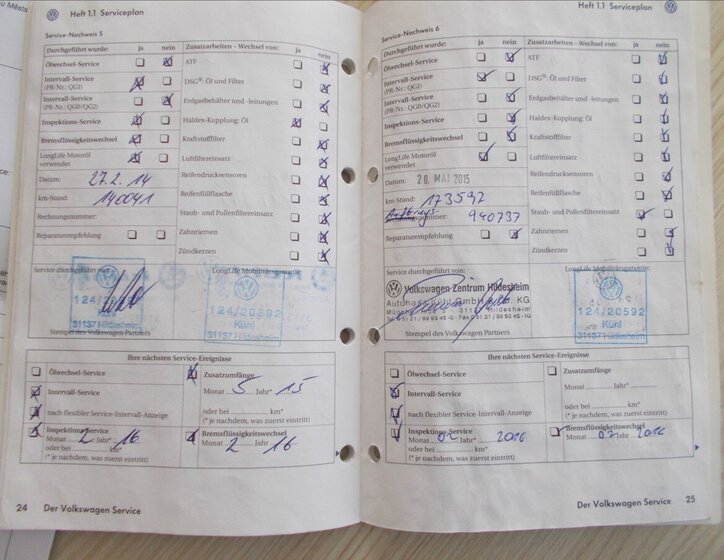 Heft 1.1 Serviceplan
Service-Nachweis 5
Durchgeführt wurde: ja nein
Ölwechsel-Service
Intervall-Service
(PR-Nr.: QG1)
Intervall-Service
(PR-Nr.: QG0/QG2)
Inspektions-Service
Bremsflüssigkeitswechsel
LongLife Motoröl
verwendet
Datum: 27.2.14
km-Stand: 140041
Rechnungsnummer:
Reparaturempfehlung
Zusatzarbeiten – Wechsel von: ja nein
ATF
DSG®: Öl und Filter
Erdgasbehälter und -leitungen
Haldex-Kupplung, Öl
Kraftstofffilter
Luftfiltereinsatz
Reifendrucksensoren
Reifenfüllflasche
Staub- und Pollenfiltereinsatz
Zahnriemen
Zündkerzen
Service durchgeführt von:
124/20592
Kühl
31137 Hildesheim
Stempel des Volkswagen Partners
LongLife Mobilitätsgarantie:
124/20592
Kühl
31137 Hildesheim
Ihre nächsten Service-Ereignisse
Ölwechsel-Service
Intervall-Service
nach flexibler Service-Intervall-Anzeige
Inspektions-Service
Monat 2 Jahr 16
oder bei km*
(* je nachdem, was zuerst eintritt)
Zusatzumfänge
Monat 5 Jahr* 15
oder bei km*
(* je nachdem, was zuerst eintritt)
Bremsflüssigkeitswechsel
Monat 2 Jahr 16
24 Der Volkswagen Service
Heft 1.1 Serviceplan
Service-Nachweis 6
Durchgeführt wurde: ja nein
Ölwechsel-Service
Intervall-Service
(PR-Nr.: QG1)
Intervall-Service
(PR-Nr.: QG0/QG2)
Inspektions-Service
Bremsflüssigkeitswechsel
LongLife Motoröl
verwendet
Datum: 28. MAI 2015
km-Stand: 173592
940737
Reparaturempfehlung
Zusatzarbeiten – Wechsel von: ja nein
ATF
DSG®: Öl und Filter
Erdgasbehälter und -leitungen
Haldex-Kupplung: Öl
Kraftstofffilter
Luftfiltereinsatz
Reifendrucksensoren
Reifenfüllflasche
Staub- und Pollenfiltereinsatz
Zahnriemen
Zündkerzen
Service durchgeführt von:
Volkswagen-Zentrum Hildesheim
KG
31137 Hildesheim
Stempel des Volkswagen Partners
LongLife Mobilitätsgarantie:
124/20592
Kühl
31137 Hildesheim
Ihre nächsten Service-Ereignisse
Ölwechsel-Service
Intervall-Service
nach flexibler Service-Intervall-Anzeige
Inspektions-Service
Monat 02 Jahr 2016
oder bei km*
(* je nachdem, was zuerst eintritt)
Zusatzumfänge
Monat Jahr*
oder bei km*
(* je nachdem, was zuerst eintritt)
Bremsflüssigkeitswechsel
Monat 02 Jahr 2016
Der Volkswagen Service 25